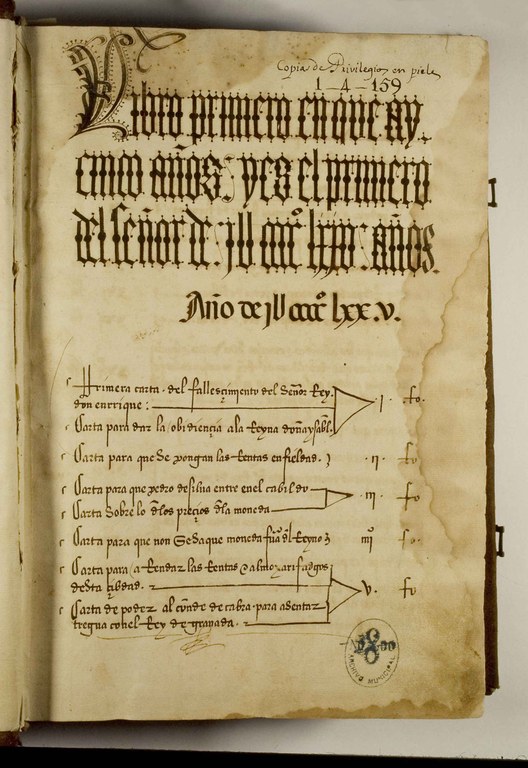 Copia de Privilegios en piele
1-4-159
Libro primero en que ay
cinco años: y es el primero
del señor de: jU cccc° lxxv: años.
Año de jU cccc° lxx.v.
Primera carta del fallesçimiento del Señor Rey
don enrrique: .j. fo.
Carta para dar la obidiençia ala Reyna doña ysabl.
Carta para que se pongan las Rentas en fieldad. .ij. fo
Carta para que pedro de silua entre en el cabildo
Carta sobre lo delos preçios dela moneda .iij. fo
Carta para que non se saque moneda fuera del Reyno iiij° fo.
Carta para a Rendar las Rentas e almoxarifadgos
desta çibdad. v. fo
Carta de poder al conde de cabra para asentar
tregua con el Rey de granada.
ARCHIVO MUNICIPAL